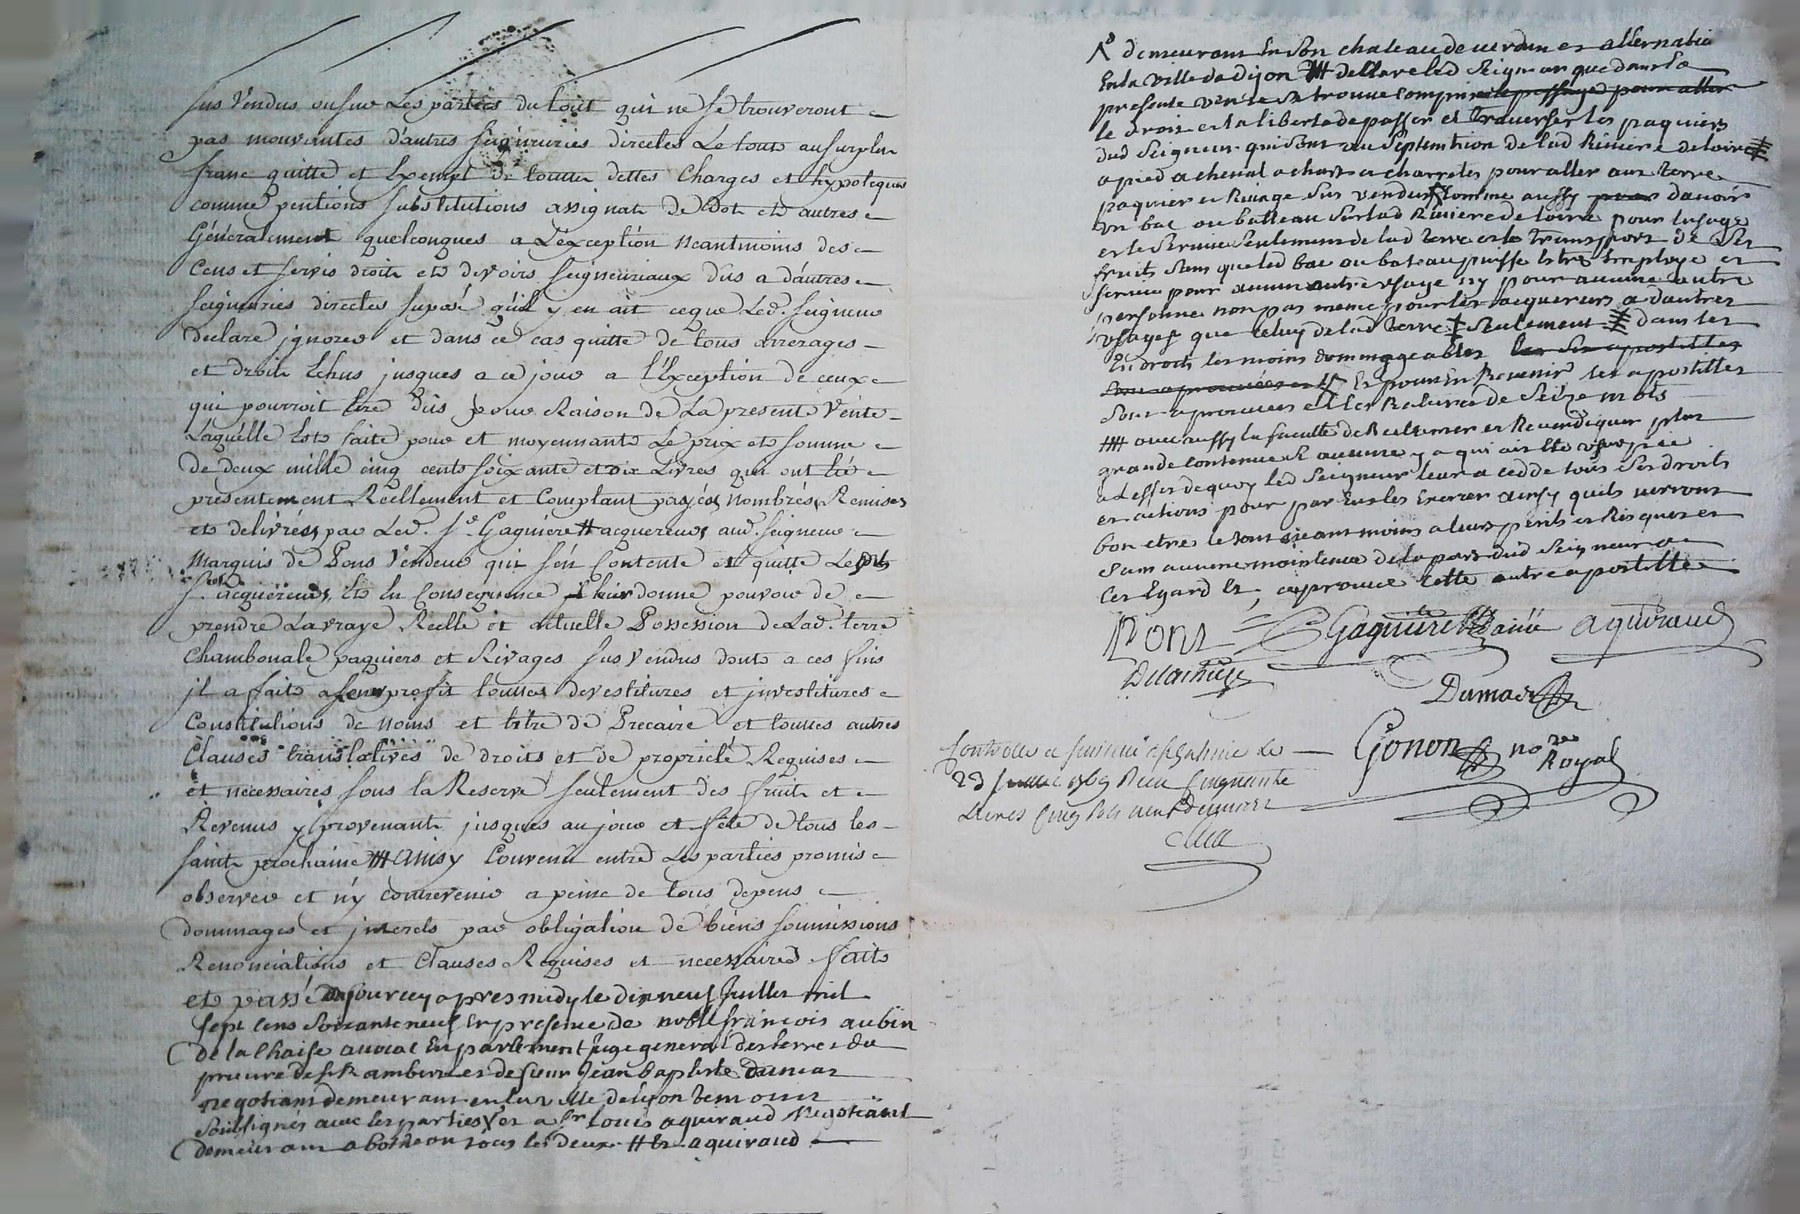 sus Vendus ou sur Les parties du tout qui ne se trouveront
pas mouvantes d'autres seigneuries directes Le tout au surplus
franc quitte et Exempt de toutes dettes Charges et hypoteques
comme pentions substitutions assignat de Dot et autres
Généralement quelconques a L'exception neantmoins des
Cens et servis droits et devoirs seigneuriaux dus a d'autres
seigneuries directes suposé quil y en ait ce que Led. seigneur
declare jgnorer et dans ce cas quitte de tous arrerages
et droits Echus jusques a ce jour a l'Exception de ceux
qui pourroit Etre dus pour Raison de La presente Vente
Laquelle Est faite pour et moyennant Le prix et somme
de deux mille cinq cents soixante et dix Livres qui ont été
presentement Réellement et Comptant payés, nombrés, Remises
et delivrés par Led. Sr. Gaguiere # acquereurs aud. seigneur
Marquis de Pons Vendeur qui s'en Contente et quitte Lesdts
Srs. acquereurs, Et En Consequence leur donne pouvoir de
prendre La vraye Réelle et actuelle Possession de Lad. terre
Chambonale paquiers et Rivages sus vendus dont a ces fins
jl a fait a leur profit toutes devestitures et jnvestitures
Constitutions de noms et titre de Precaire et toutes autres
Clauses translatives de droits et de proprieté Requises
et necessaires sous la Reserve seulement des fruits et
Revenus y provenant jusques au jour et fête de tous les
saints prochaine #### Ainsy Convenu entre Les parties promis
observer et n'y contrevenir a peine de tous depens
dommages et jnterets par obligation de biens soumissions
Renonciations et Clauses Requises et necessaires fait
et passé jourcey apres midy le dix neuf Juillet mil
sept cens soixante neuf En presence de noble françois aubin
de la Chaise avocat En parlement juge general des terres du
prieuré de St Rambert et de sieur Jean baptiste Dumas
negotiant demeurant en la ville de lyon temoins
soussignés avec les parties et a Sr Louis aguiraud Negotiant
demeurant a tous les deux # Et aguiraud
demeurant En son chateau de verdun et alternativ
En la ville de dijon #### declare led Seigneur que dans la
presente vente se trouve compris le passage pour aller
le droit et la liberté de passer et traverser les paquiers
dud Seigneur qui sont au Septentrion de lad Riviere de loire
a pied a cheval a chars a charrettes pour aller aux terre
paquier et Rivage sus vendus comme aussy pour davoir
un bac ou batteau sur lad Riviere de loire pour lusage
et le Service Seulement de lad terre et le transport de Ses
fruits Sans que led bac ou bateau puisse Etre Employé et
servir pour aucun autre usage ny pour aucune autre
personne non pas meme pour les acquereurs a dautres
usages que celuy de lad terre Seulement dans les
Endroits les moins dommageables les Six apostilles
Sont aprouvées et Et pour En Revenir les apostilles
Sont aprouvees et les Ratures de Seize mots
#### avec aussy la faculté de Reclamer et Revendiquer plus
grande contenue Si aucune y a qui ait Eté usurpée
a Leffet de quoy led Seigneur leur a cedde tous Ses droits
et actions pour par Eux les Exercer ainsy quils verront
bon etre le tout neantmoins a leurs perils et Risques et
Sans aucune maintenue de la part dud Seigneur a
Cet Egard Et aprouve cette autre apostille
Pons Gaguiere ainé aguiraud
Delachaise Dumas
Gonon nore
Royal
Controllé et insinué a le
23 Juillet 1769 Recu Cinquante
Livres Cinq sols neuf deniers